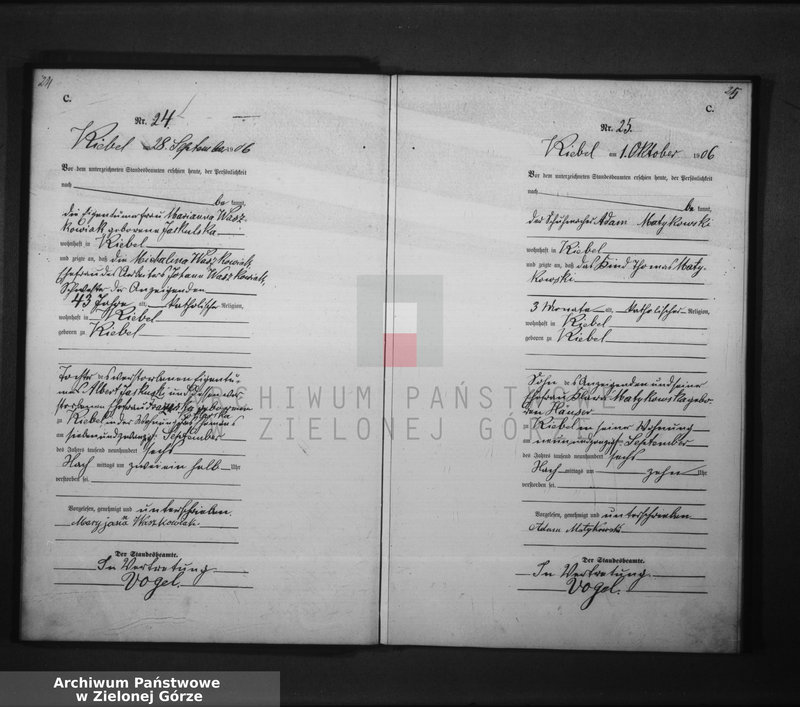 24
C.
Nr. 24.
Kiebel am 28. September 1906
Vor dem unterzeichneten Standesbeamten erschien heute, der Persönlichkeit
nach
be kannt,
die Eigentümerfrau Marianna Wasz-
kowiak geborene Jaskulska
wohnhaft in Kiebel
und zeigte an, daß die Michalina Waszkowiak,
Ehefrau des Arbeiters Johann Waszkowiak,
Schwester der Anzeigenden
43 Jahre alt, katholischer Religion,
wohnhaft in Kiebel
geboren zu Kiebel
Tochter des verstorbenen Eigentü-
mers Albert Jaskulski und dessen ver-
storbenen Ehefrau geborenen
zu Kiebel in der Wohnung des
am siebenundzwanzigsten September
des Jahres tausend neunhundert sechs
Nach mittags um zwei ein halb Uhr
verstorben sei.
Vorgelesen, genehmigt und unterschrieben.
Maryjana Waszkowiak
Der Standesbeamte.
In Vertretung
Vogel.
25
C.
Nr. 25.
Kiebel am 1. Oktober 1906
Vor dem unterzeichneten Standesbeamten erschien heute, der Persönlichkeit
nach
be kannt,
der Schuhmacher Adam Matykowski
wohnhaft in Kiebel
und zeigte an, daß das Kind Thomas Maty-
kowski
3 Monate alt, katholischer Religion,
wohnhaft in Kiebel
geboren zu Kiebel
Sohn des Anzeigenden und seiner
Ehefrau Klara Matykowska gebo-
renen
zu Kiebel in seiner Wohnung
am neunundzwanzigsten September
des Jahres tausend neunhundert sechs
Nach mittags um zehn Uhr
verstorben sei.
Vorgelesen, genehmigt und unterschrieben.
Adam Matykowski
Der Standesbeamte.
In Vertretung
Vogel.
ARCHIWUM PAŃSTWOWE
W ZIELONEJ GÓRZE
Archiwum Państwowe
w Zielonej Górze